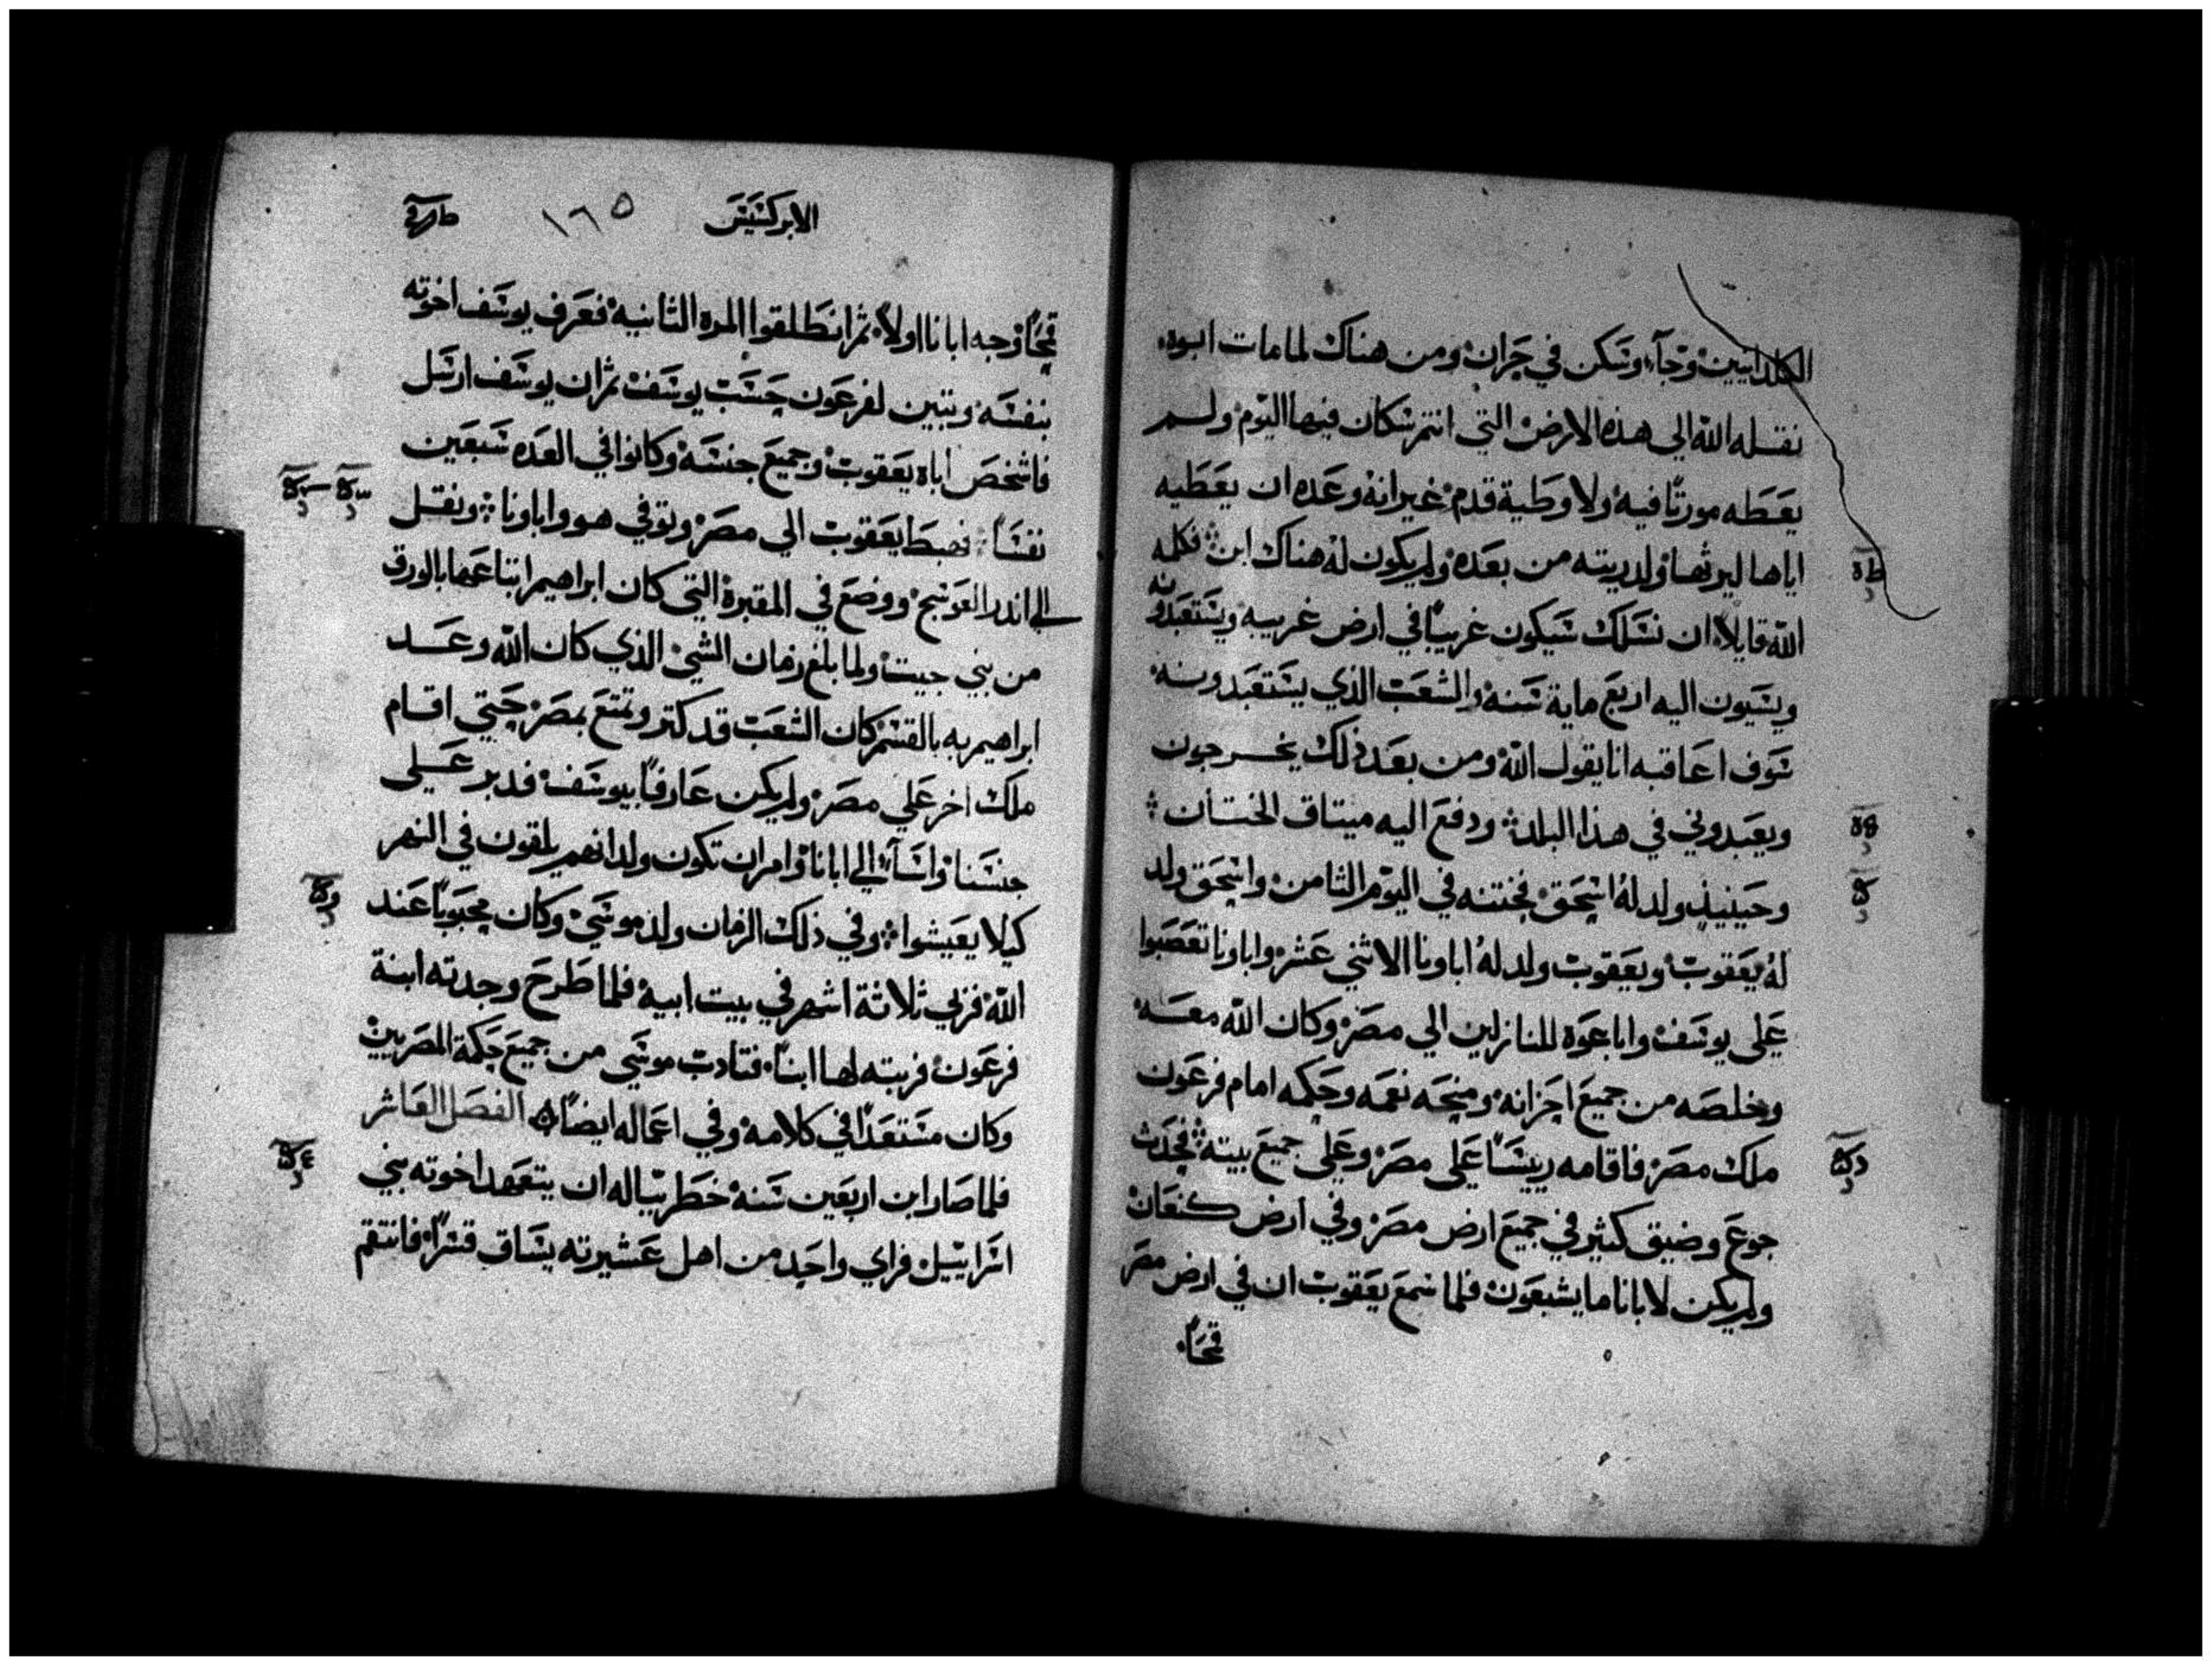 الكلدانيين وجآء وسكن في حران ومن هناك لما مات ابوه
نقله الله الي هذه الارض التي انتم سكان فيها اليوم ولم
يعطه مورثا فيه ولا وطية قدم غير انه وعده ان يعطيه
اياها ليرثها ولدريته من بعده ولم يكون له هناك ابن فكلمه
الله قايلا ان نسلك سيكون غريبا في ارض غريبه ويستعبدونه
ويسيون اليه اربع ماية سنه والشعب الذي يستعبدونه
سوف اعاقبه انا يقول الله ومن بعد ذلك يخرجون
ويعبدوني في هذا البلد ودفع اليه ميتاق الختان
وحينيذ ولد له اسحق فختنه في اليوم الثامن واسحق ولد
له يعقوب ويعقوب ولد له اباونا الاثني عشر واباونا تعصبوا
علي يوسف واباعوه للنازلين الي مصر وكان الله معه
وخلصه من جميع احزانه ومنحه نعمه وحكمه امام فرعون
ملك مصر فاقامه رييسا علي مصر وعلي جميع بيته فحدث
جوع وضيق كثير في جميع ارض مصر وفي ارض كنعان
ولم يكن لابانا ما يشبعون فلما سمع يعقوب ان في ارض مصر
قمحا
الابركسيس ١٦٥
قمحا وجه ابانا اولا ثم انطلقوا المره الثانيه فعرف يوسف اخوته
بنفسه وتبين لفرعون حسب يوسف ثم ان يوسف ارسل
فاشخص اباه يعقوب وجميع جنسه وكانوا في العده سبعين
نفسا فهبط يعقوب الي مصر وتوفي هو واباونا ونقل
الي اندر العوسج ووضع في المقبرة التي كان ابراهيم ابتاعها بالورق
من بني حيت ولما بلغ زمان الشي الذي كان الله وعد
ابراهيم به بالقسم كان الشعب قد كتر وتمتع بمصر حتي اقام
ملك اخر علي مصر ولم يكن عارفا بيوسف فدبر علي
جنسنا واسآء الي ابانا وامر ان تكون ولدانهم يلقون في النهر
كيلا يعيشوا وفي ذلك الزمان ولد موسي وكان محبوبا عند
الله فربي ثلاثة اشهر في بيت ابيه فلما طرح وجدته ابنة
فرعون فربته لها ابنا فتادب موسي من جميع حكمة المصريين
وكان مستعدا في كلامه وفي اعماله ايضا الفصل العاشر
فلما صار ابن اربعين سنه خطر بباله ان يتعهد اخوته بني
اسراييل فراي واحد من اهل عشيرته يساق قسرا فانتقم